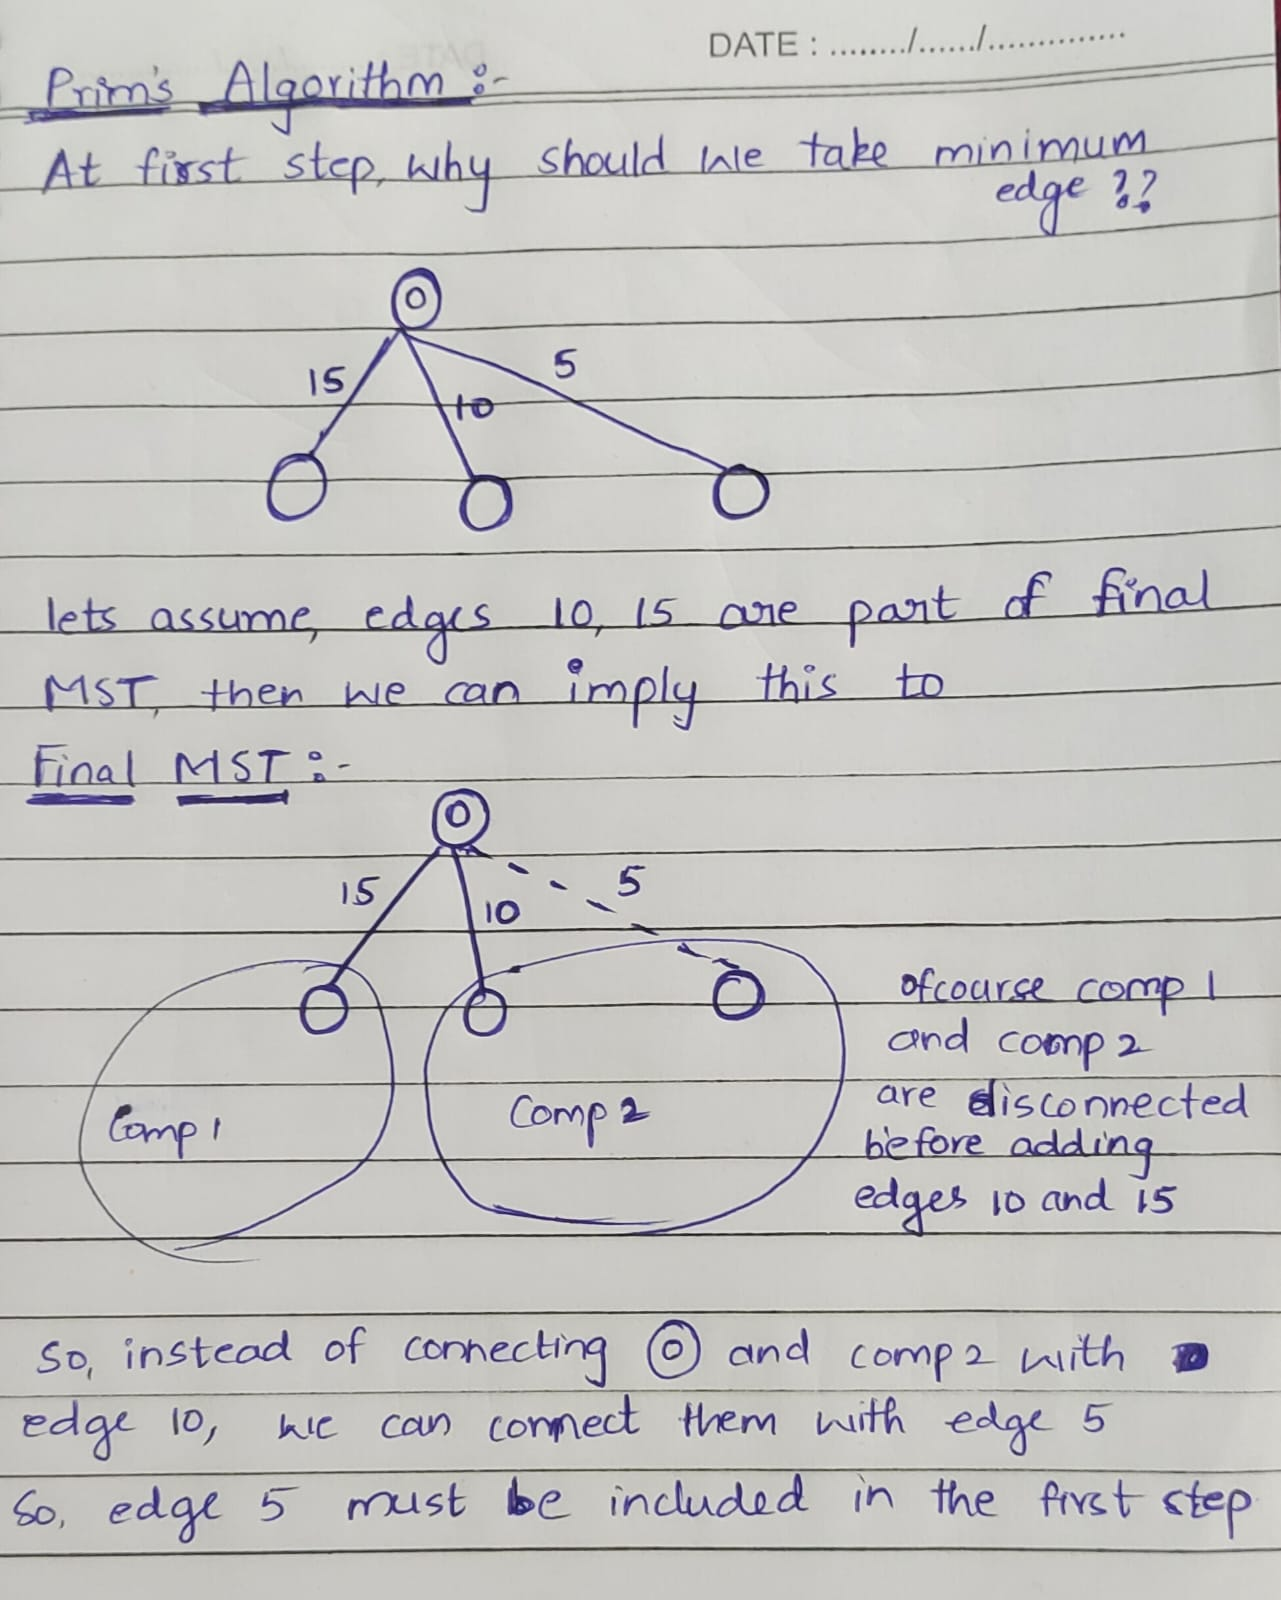 DATE : ......../....../..............
Prim's Algorithm :-
At first step, why should we take minimum
edge ??
0
15
10
5
lets assume, edges 10, 15 are part of final
MST, then we can imply this to
Final MST :-
0
15
10
5
Comp 1
Comp 2
ofcourse comp 1
and comp 2
are disconnected
before adding
edges 10 and 15
So, instead of connecting 0 and comp 2 with
edge 10, we can connect them with edge 5
So, edge 5 must be included in the first step